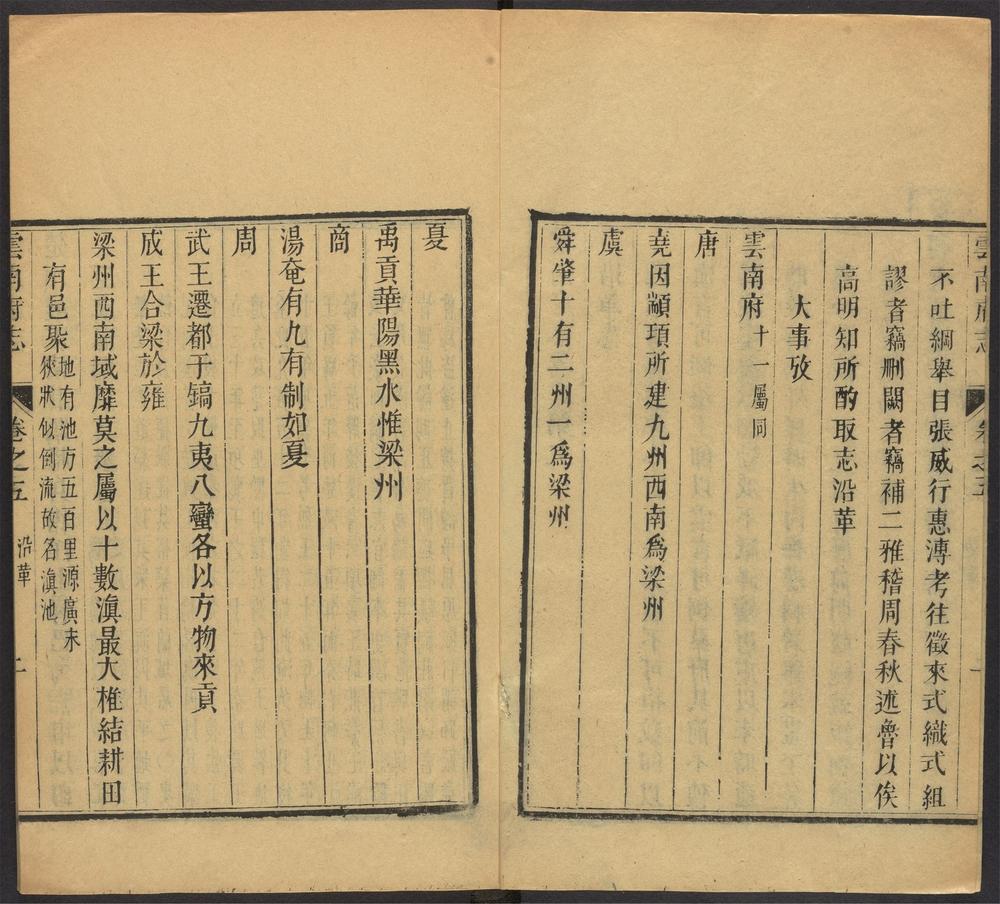 雲南府志
卷之五
不吐綱舉目張威行惠溥考往徵來式織式組
謬者竊删闕者竊補二雅稽周春秋述魯以俟
高明知所酌取志沿革
大事攷
雲南府十一屬同
唐
堯因顓頊所建九州西南爲梁州
虞
舜肇十有二州一爲梁州
夏
禹貢華陽黑水惟梁州
商
湯奄有九有制如夏
周
武王遷都于鎬九夷八蠻各以方物來貢
成王合梁於雍
梁州西南域靡莫之屬以十數滇最大椎結耕田
有邑聚地有池方五百里源廣末
狹狀似倒流故名滇池
雲南府志
卷之五
沿革
二